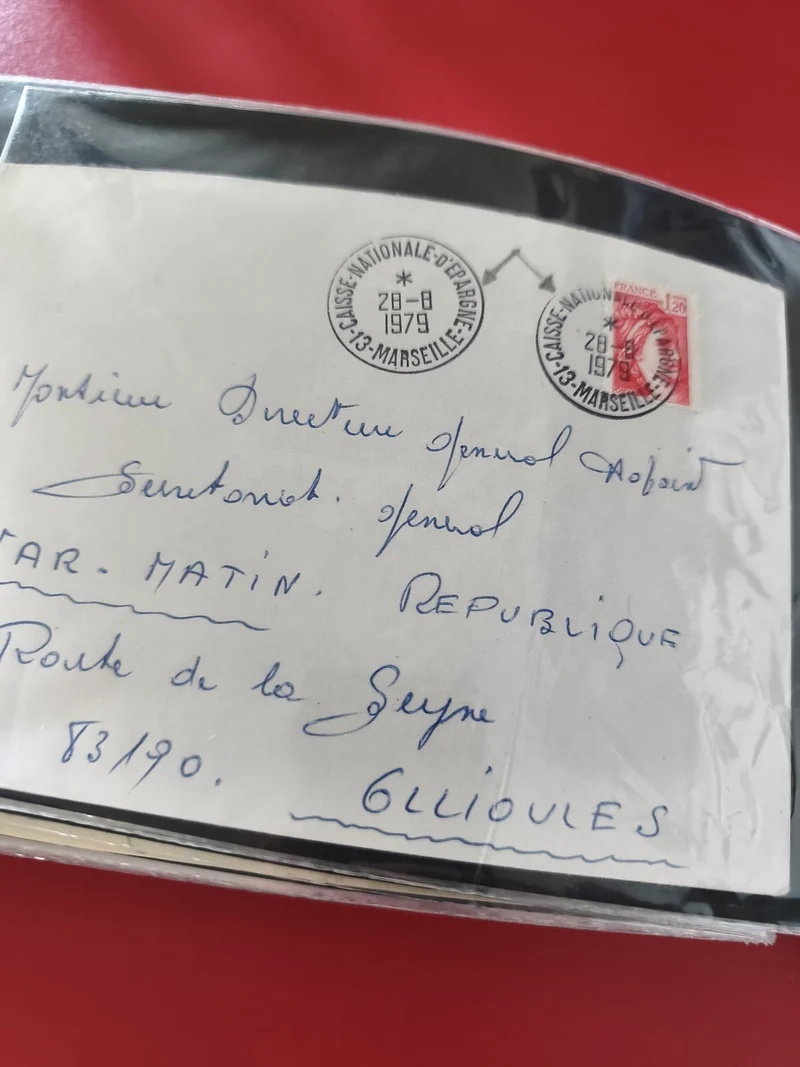 CAISSE-NATIONALE-D'EPARGNE-
*
28-8
1979
-13-MARSEILLE-
FRANCE 1,20
CAISSE-NATIONALE-D'EPARGNE-
*
28-8
1979
-13-MARSEILLE-
Monsieur Directeur General
Secretariat. General
AR. MATIN. REPUBLIQUE
Route de la Seyne
83190.
OLLIOULES